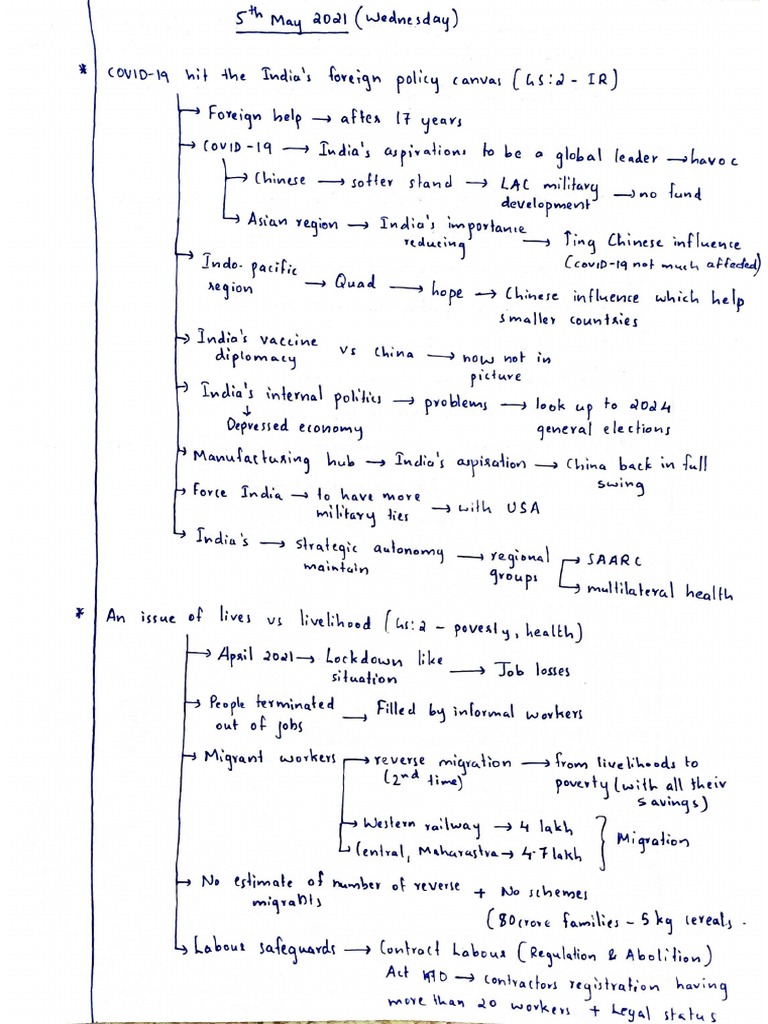 5th May 2021 (Wednesday)
* COVID-19 hit the India's foreign policy canvas (GS:2 - IR)
→ Foreign help → after 17 years
→ COVID-19 → India's aspirations to be a global leader → havoc
→ Chinese → softer stand → LAC military development → no fund
→ Asian region → India's importance reducing → ↑ing Chinese influence (COVID-19 not much affected)
→ Indo-pacific region → Quad → hope → Chinese influence which help smaller countries
→ India's vaccine diplomacy vs China → now not in picture
→ India's internal politics → problems → look up to 2024 general elections
↓
Depressed economy
→ Manufacturing hub → India's aspiration → China back in full swing
→ Force India → to have more military ties → with USA
→ India's → strategic autonomy maintain → regional groups → SAARC
→ multilateral health
* An issue of lives vs livelihood (GS:2 - poverty, health)
→ April 2021 → Lockdown like situation → Job losses
→ People terminated out of jobs → Filled by informal workers
→ Migrant workers → reverse migration (2nd time) → from livelihoods to poverty (with all their savings)
→ Western railway → 4 lakh
→ Central, Maharastra → 4.7 lakh } Migration
→ No estimate of number of reverse migrants + No schemes
(80 crore families - 5 kg cereals.
→ Labour safeguards → Contract Labour (Regulation & Abolition)
Act → contractors registration having
more than 20 workers + Legal status